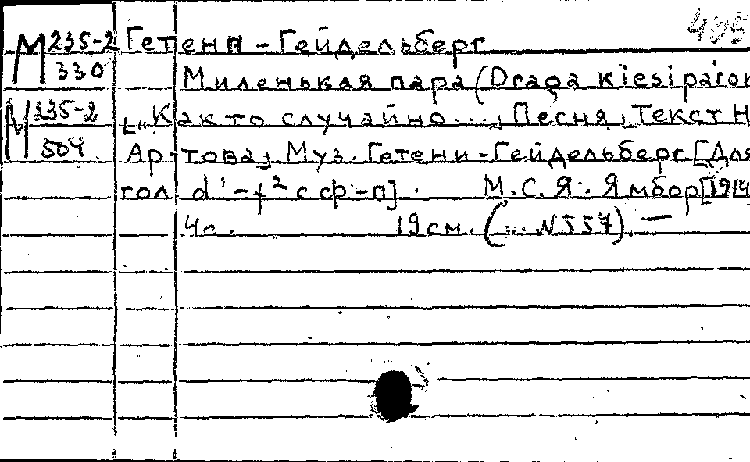 М 235-2 Гетени - Гейдельберг
330 Миленькая пара (Draga kis
М 235-2 ["Как то случайно..., Песня, Текст Н
504. Артова, Муз. Гетени-Гейдельберг [Для
гол d'-f² с ф-п]. М.С.Я. Ямбор [1914
4с. 19 см. (... N 557). —